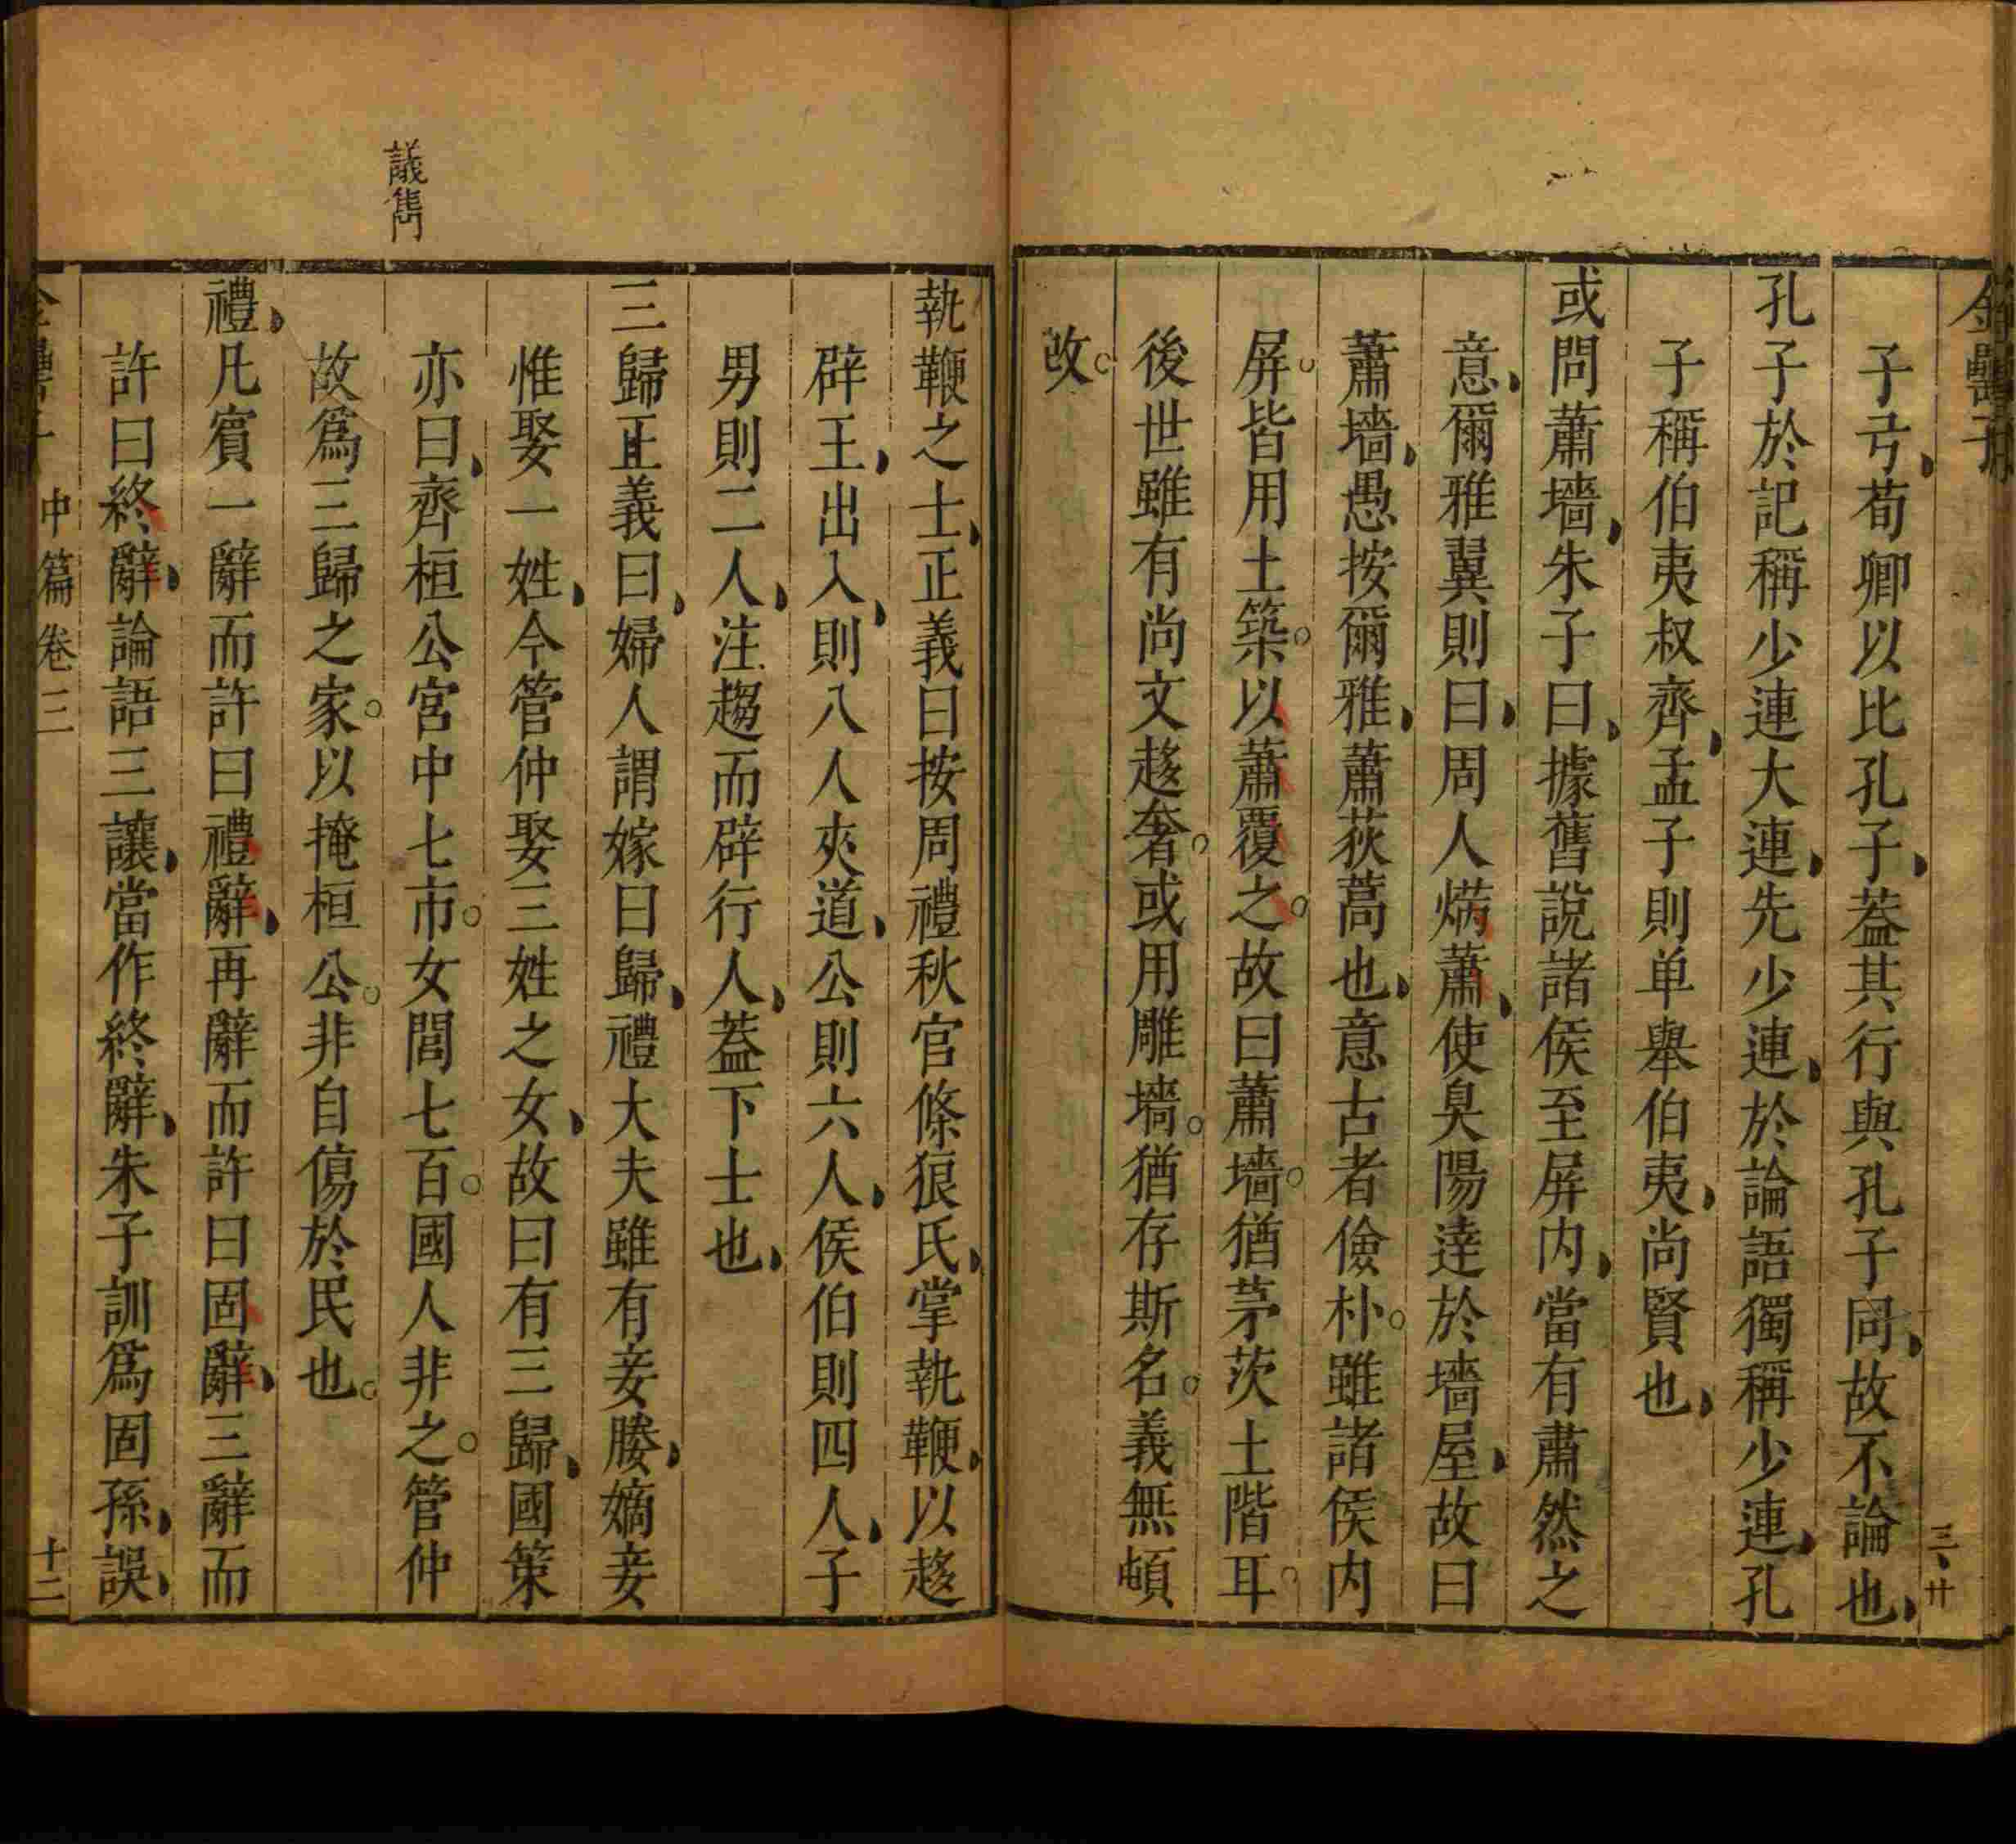 子弓荀卿以比孔子蓋其行與孔子同故不論也
孔子於記稱少連大連先少連於論語獨稱少連孔
子稱伯夷叔齊孟子則单舉伯夷尚賢也
或問蕭墻朱子曰據舊說諸侯至屏内當有肅然之
意爾雅翼則曰周人焫蕭使臭陽達於墻屋故曰
蕭墻愚按爾雅蕭荻蒿也意古者儉朴雖諸侯内
屏皆用土築以蕭覆之故曰蕭墻猶茅茨土階耳
後世雖有尚文趍奢或用雕墻猶存斯名義無頓
改
議雋
執鞭之士正義曰按周禮秋官條狼氏掌執鞭以趍
辟王出入則八人夾道公則六人侯伯則四人子
男則二人注趨而辟行人蓋下士也
三歸正義曰婦人謂嫁曰歸禮大夫雖有妾媵嫡妾
惟娶一姓今管仲娶三姓之女故曰有三歸國策
亦曰齊桓公宮中七市女閭七百國人非之管仲
故爲三歸之家以掩桓公非自傷於民也
禮凡賓一辭而許曰禮辭再辭而許曰固辭三辭而
許曰終辭論語三讓當作終辭朱子訓爲固孫誤
中篇卷三
十二